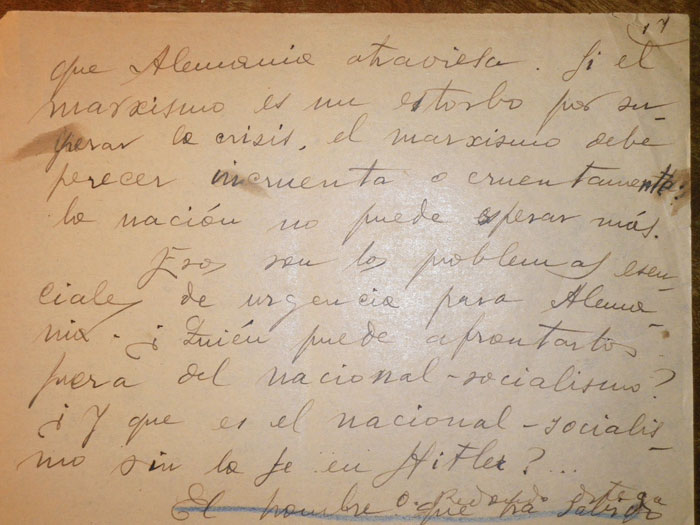 17
que Alemania atraviesa. Si el
marxismo es un estorbo por su
perar la crisis, el marxismo debe
perecer incruenta o cruentamente:
la nación no puede esperar más.
Esos son los problemas esen-
ciales de urgencia para Alema-
nia. ¿Quién puede afrontarlos
fuera del nacional-socialismo?
¿Y que es el nacional-socialis-
mo sin la fe en Hitler?...
O. Redondo Ortega
El hombre que ha sabido